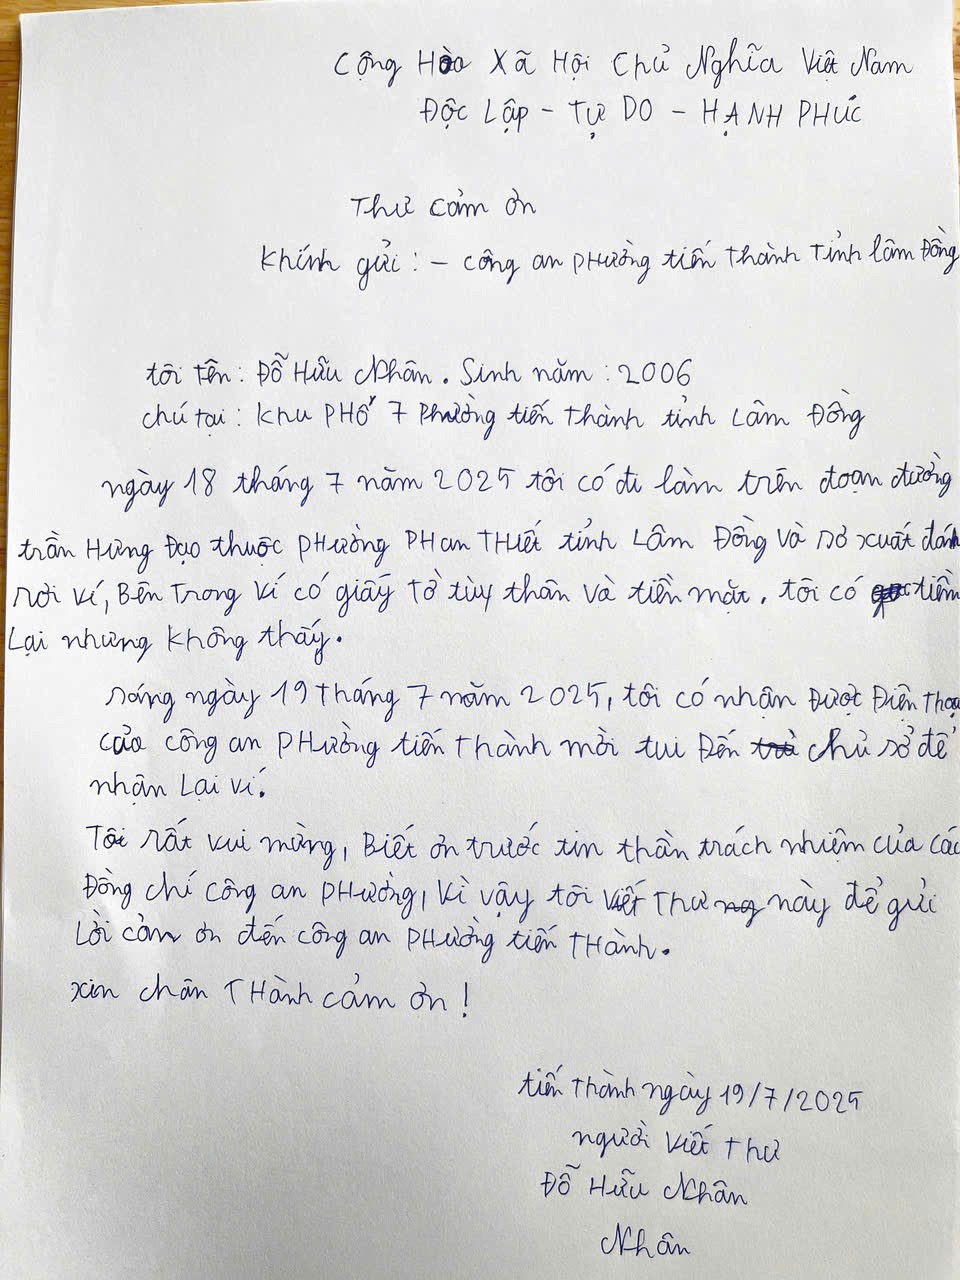 Cộng Hòa Xã Hội Chủ Nghĩa Việt Nam
Độc Lập - Tự DO - HẠNH PHÚC
Thư cảm ơn
Khính gửi : - công an PHường tiến thành Tỉnh lâm Đồng
tôi tên : Đỗ Hữu Nhân . Sinh năm : 2006
chú tại : Khu PHố 7 Phường tiến thành tỉnh Lâm Đồng
ngày 18 tháng 7 năm 2025 tôi có đi làm trên đoạn đường
trần Hưng Đạo thuộc PHường PHan THiết tỉnh Lâm Đồng và sơ xuất đánh
rơi ví, Bên Trong ví có giấy Tờ tùy thân và tiền mặt. tôi có tiềm
Lại nhưng không thấy.
sáng ngày 19 tháng 7 năm 2025, tôi có nhận Được Điện thoại
của công an PHường tiến Thành mời tui Đến chủ sở để
nhận Lại ví.
Tôi rất vui mừng, Biết ơn trước tin thần trách nhiệm của các
Đồng chí công an PHường, Vì vậy tôi viết Thư này để gửi
Lời cảm ơn đến công an PHường tiến THành.
xin chân THành cảm ơn !
tiến Thành ngày 19/7/2025
người viết thư
Đỗ Hữu Nhân
Nhân